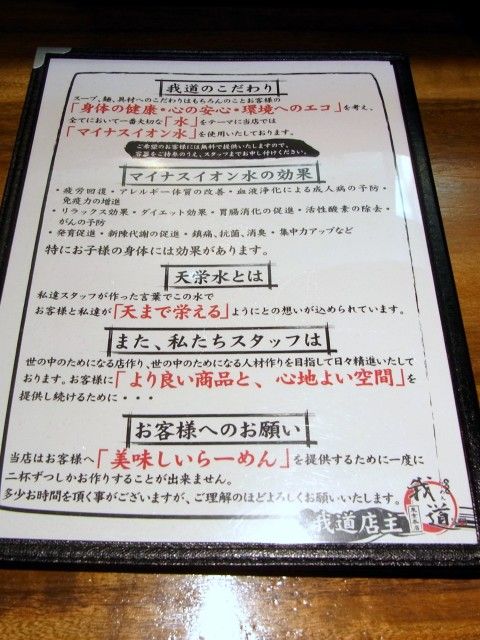 我道のこだわり
スープ、麺、具材へのこだわりはもちろんのことお客様の
「身体の健康・心の安心・環境へのエコ」を考え、
全てにおいて一番大切な「水」をテーマに当店では
「マイナスイオン水」を使用いたしております。
ご希望のお客様には無料で提供いたしますので、
容器をご持参のうえ、スタッフまでお申し付けください。
マイナスイオン水の効果
・疲労回復・アレルギー体質の改善・血液浄化による成人病の予防・
免疫力の増進
・リラックス効果・ダイエット効果・胃腸消化の促進・活性酸素の除去・
がんの予防
・発育促進・新陳代謝の促進・鎮痛、抗菌、消臭・集中力アップなど
特にお子様の身体には効果があります。
天栄水とは
私達スタッフが作った言葉でこの水で
お客様と私達が「天まで栄える」ようにとの想いが込められています。
また、私たちスタッフは
世の中のためになる店作り、世の中のためになる人材作りを目指して日々精進いたして
おります。お客様に「より良い商品と、心地よい空間」を
提供し続けるために・・・
お客様へのお願い
当店はお客様へ「美味しいらーめん」を提供するために一度に
二杯ずつしかお作りすることが出来ません。
多少お時間を頂く事がございますが、ご理解のほどよろしくお願いいたします。
我道店主
我道